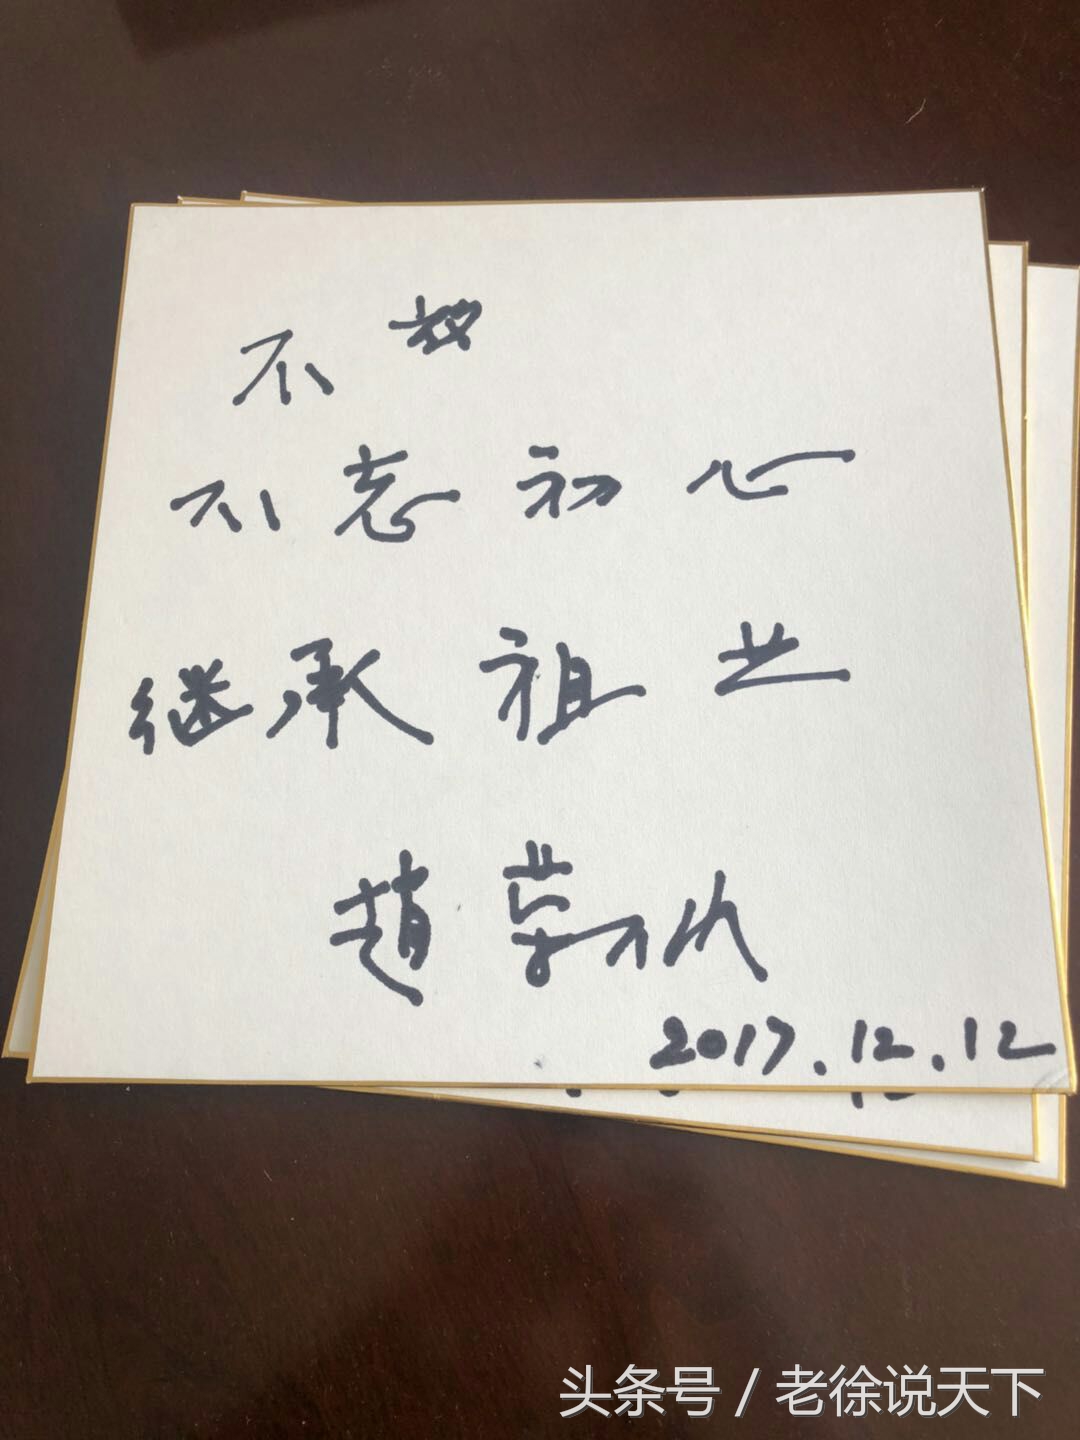 不放
不忘初心
继承祖业
赵
2017.12.12
头条号 / 老徐说天下